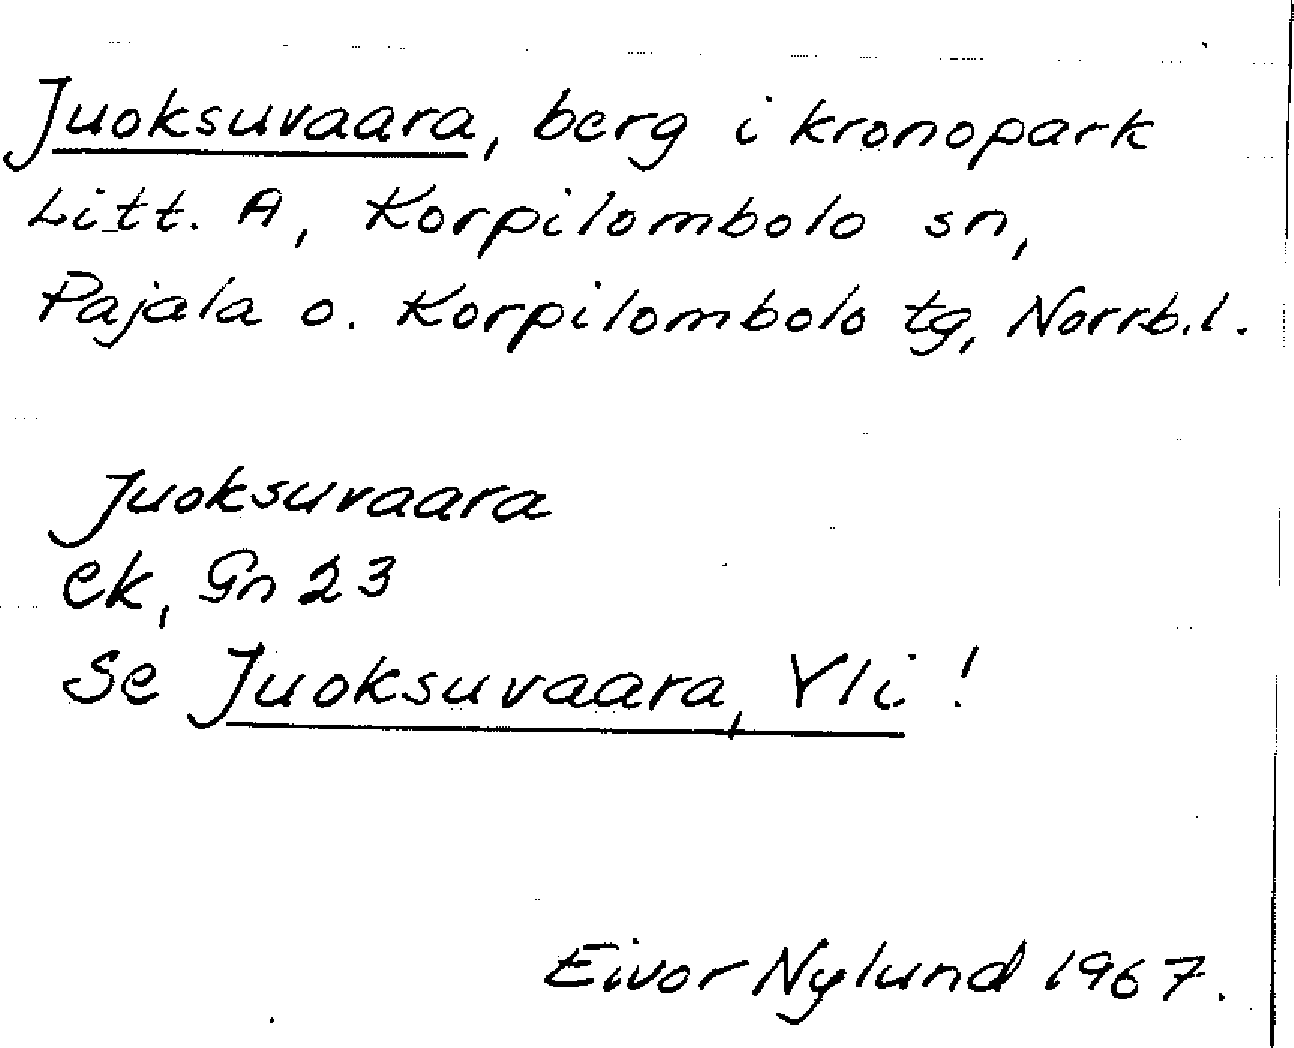 Juoksuvaara, berg i kronopark
Litt. A, Korpilombolo sn,
Pajala o. Korpilombolo tg, Norrb.l.
Juoksuvaara
ek, Gn 23
Se Juoksuvaara, Yli!
Eivor Nylund 1967.